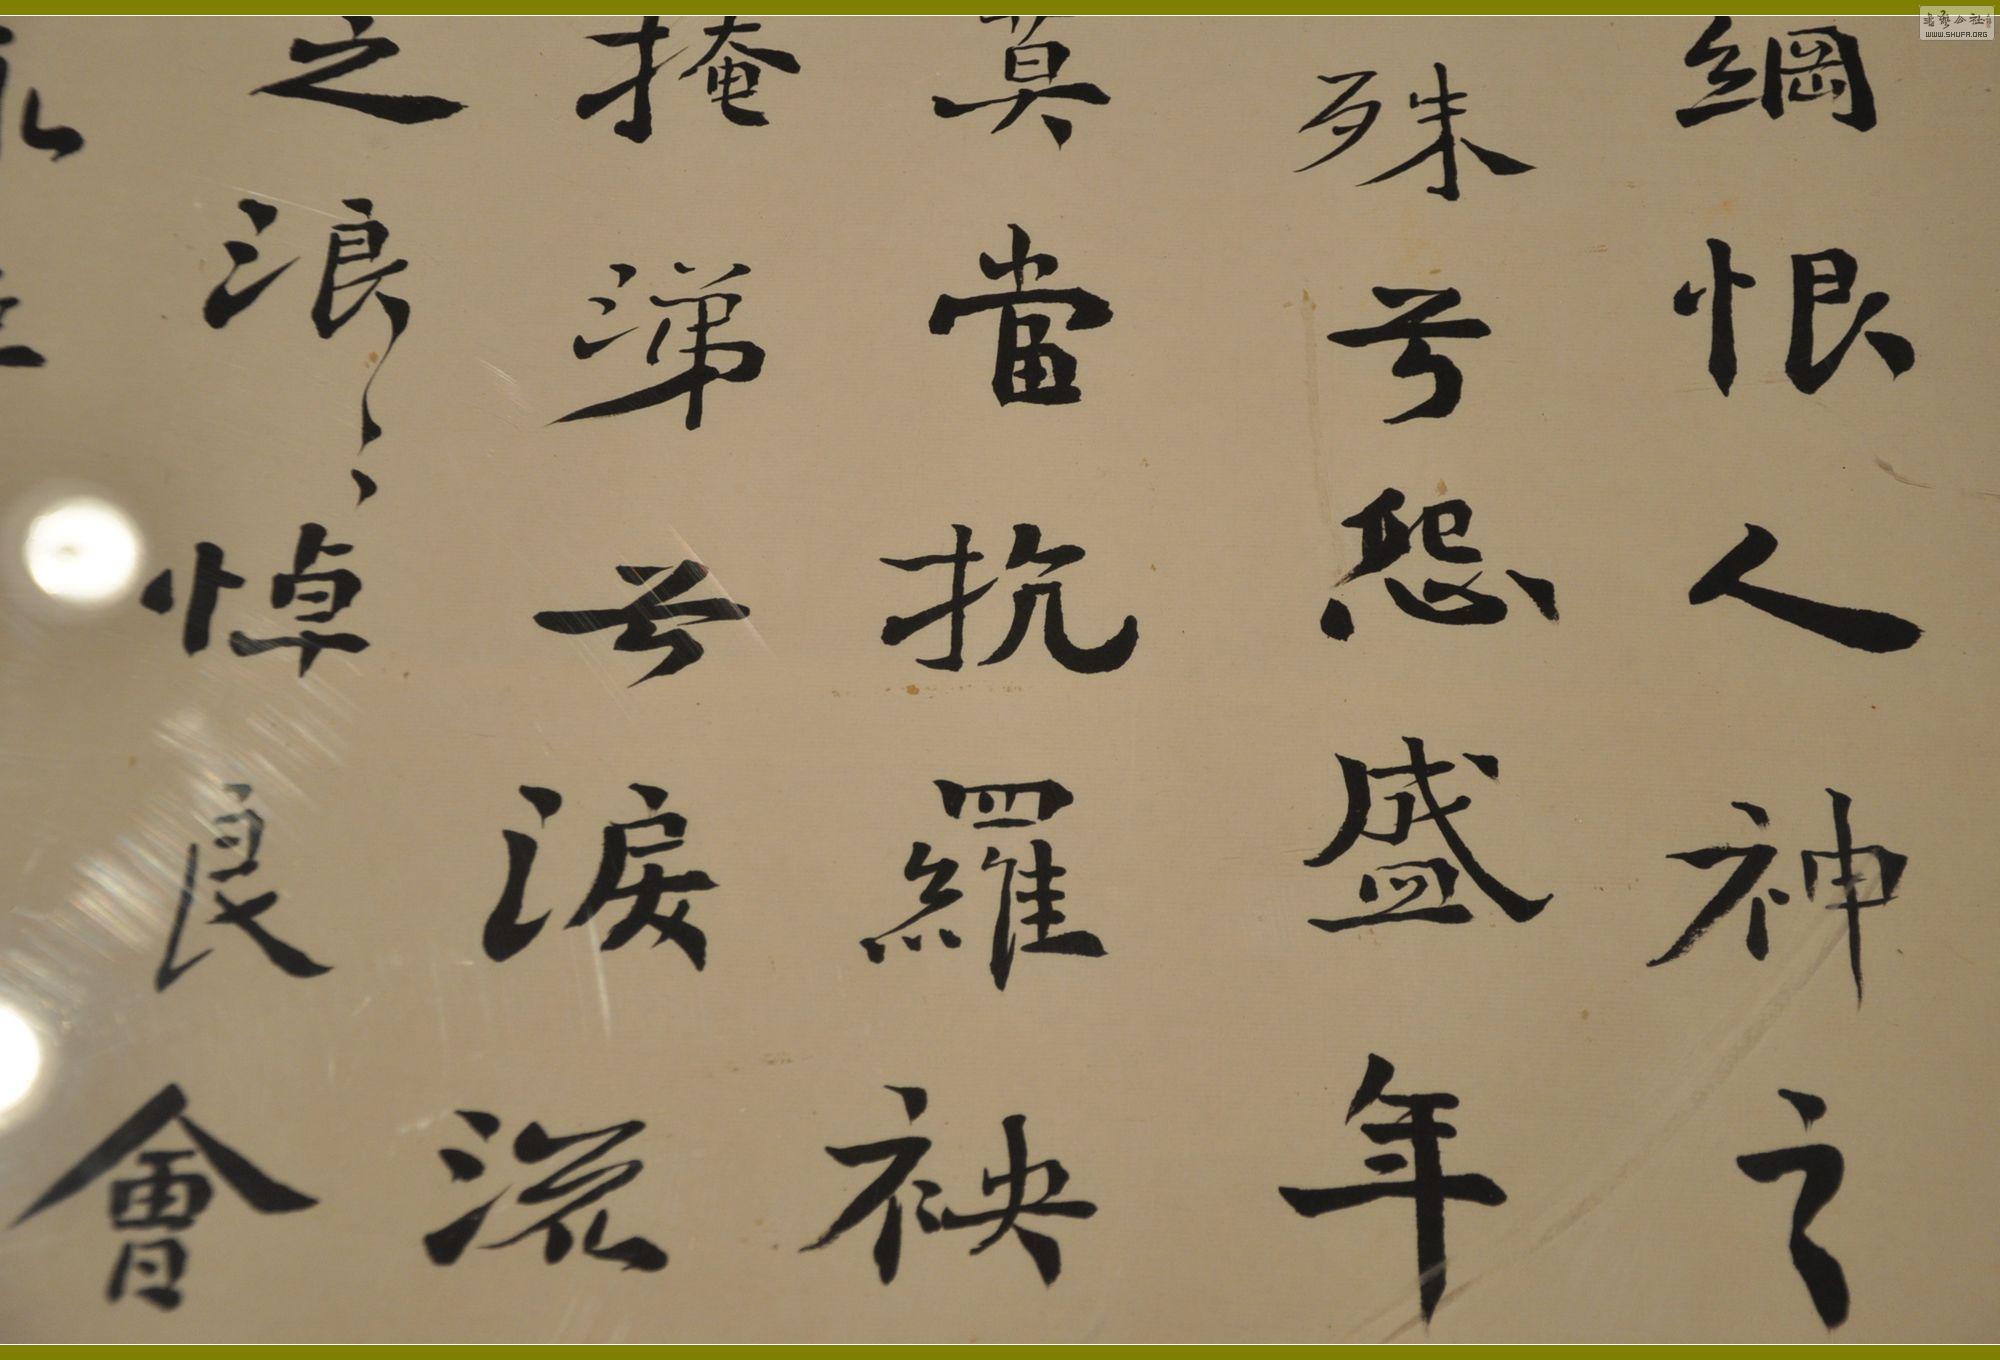 綱恨人神之
殊兮怨盛年
莫當抗羅袂
掩涕兮淚流
之浪浪悼良會
永
WWW.SHUFA.ORG